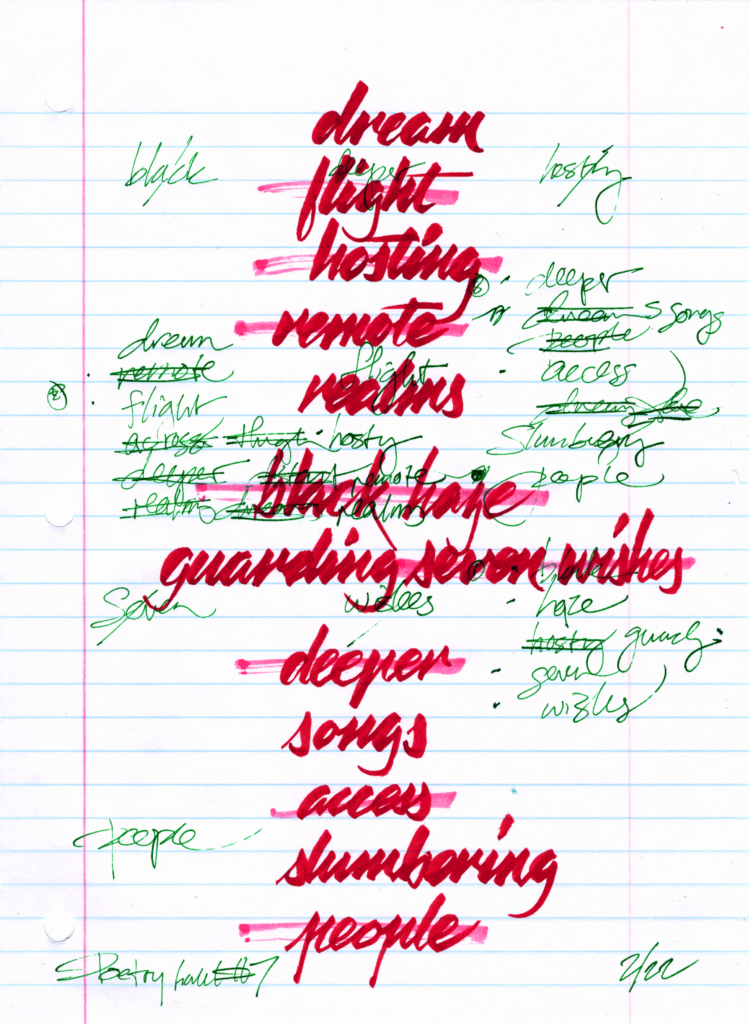 dream
black deeper hosting
flight
hosting
deeper
remote
dream songs
people
dream
realms
remote flight access
flight
dream
across hosting
slumbering
deeper remote people
realms dream realms
black haze
guarding seven wishes
Seven wishes haze
hosting guarding
seven
deeper
wishes
songs
access
people
slumbering
people
2/22